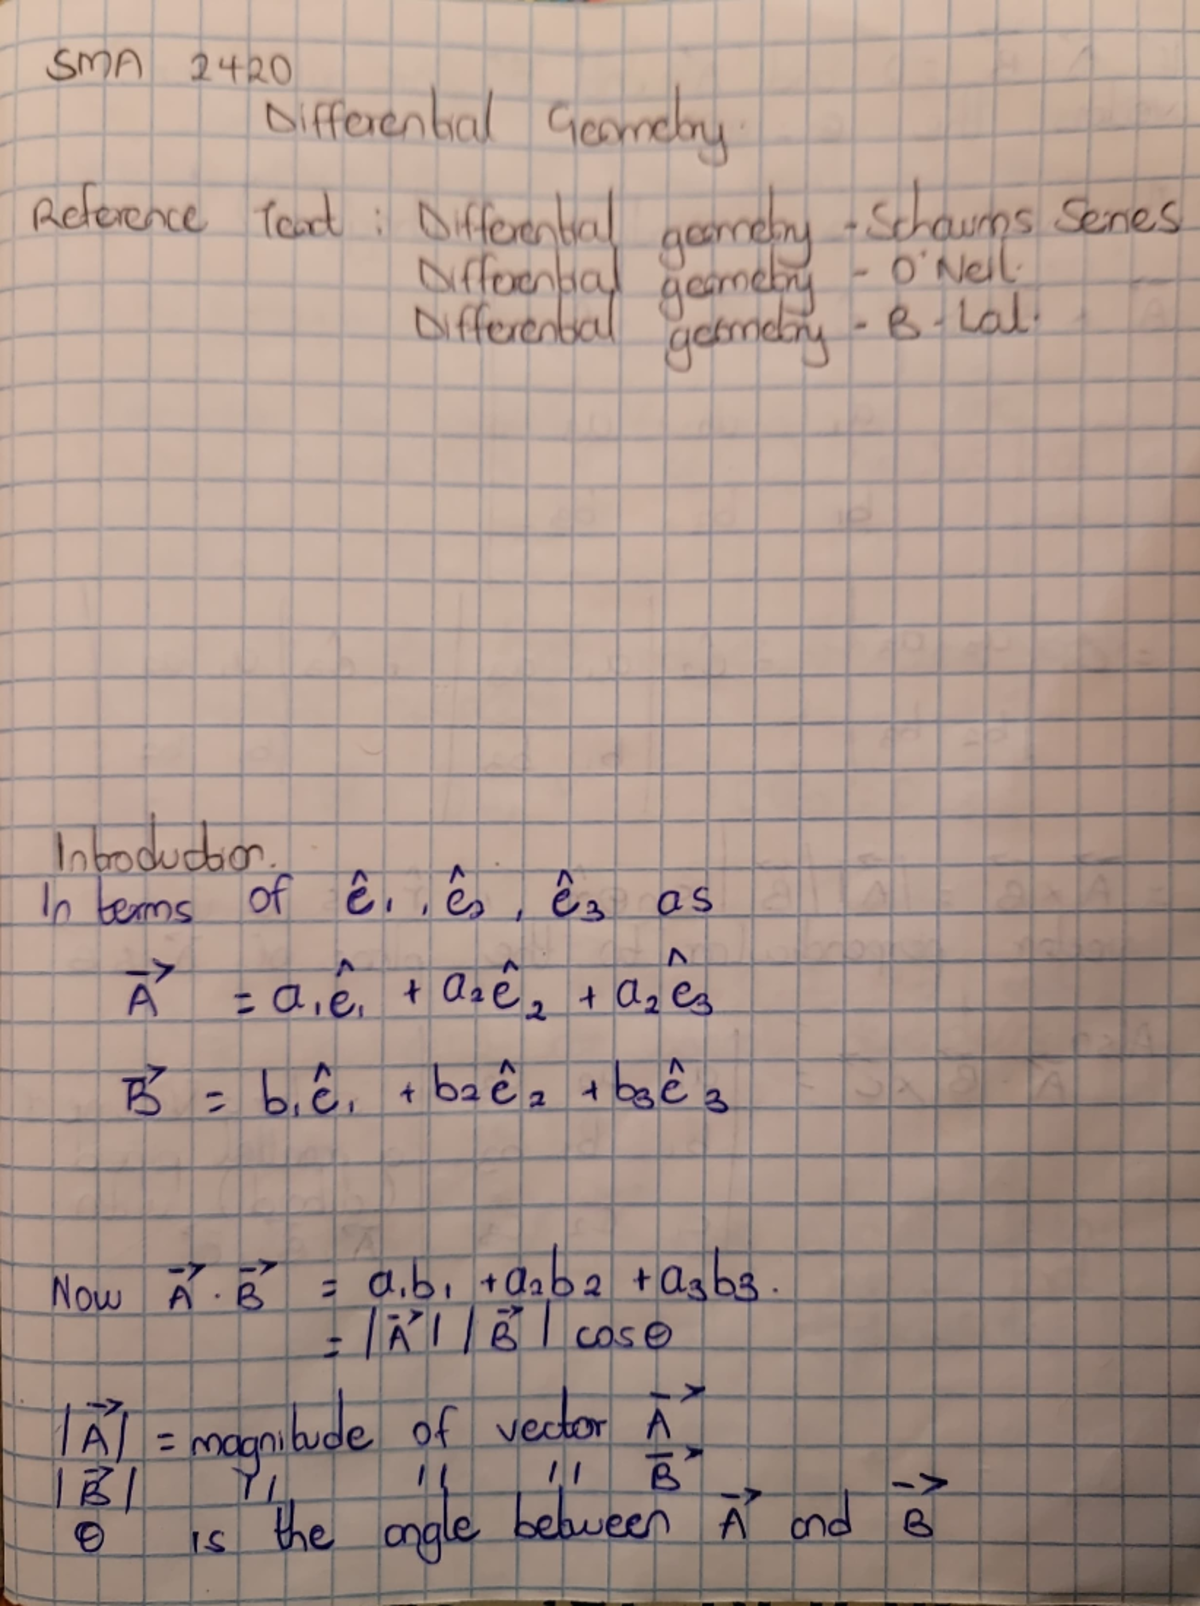 SMA 2420
Differential Geometry.
Reference Text : Differential geometry - Schaums Series
Differential geometry - O'Neil.
Differential geometry - B - Lal.
Introduction.
In terms of ê₁, ê₂, ê₃ as
A⃗ = a₁ê₁ + a₂ê₂ + a₂ê₃
B⃗ = b₁ê₁ + b₂ê₂ + b₃ê₃
Now A⃗ · B⃗ = a₁b₁ + a₂b₂ + a₃b₃.
= |A⃗| |B⃗| cosθ
|A⃗| = magnitude of vector A⃗
|B⃗| '' '' '' B⃗
θ is the angle between A⃗ and B⃗